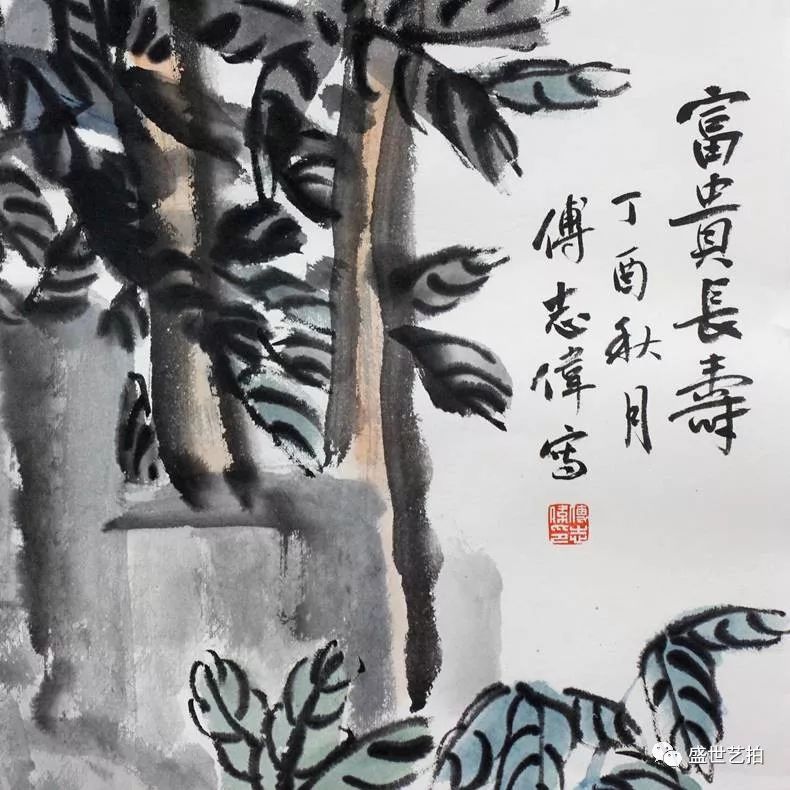 富貴長壽
丁酉秋月
傅志偉寫
傅志偉印
盛世艺拍